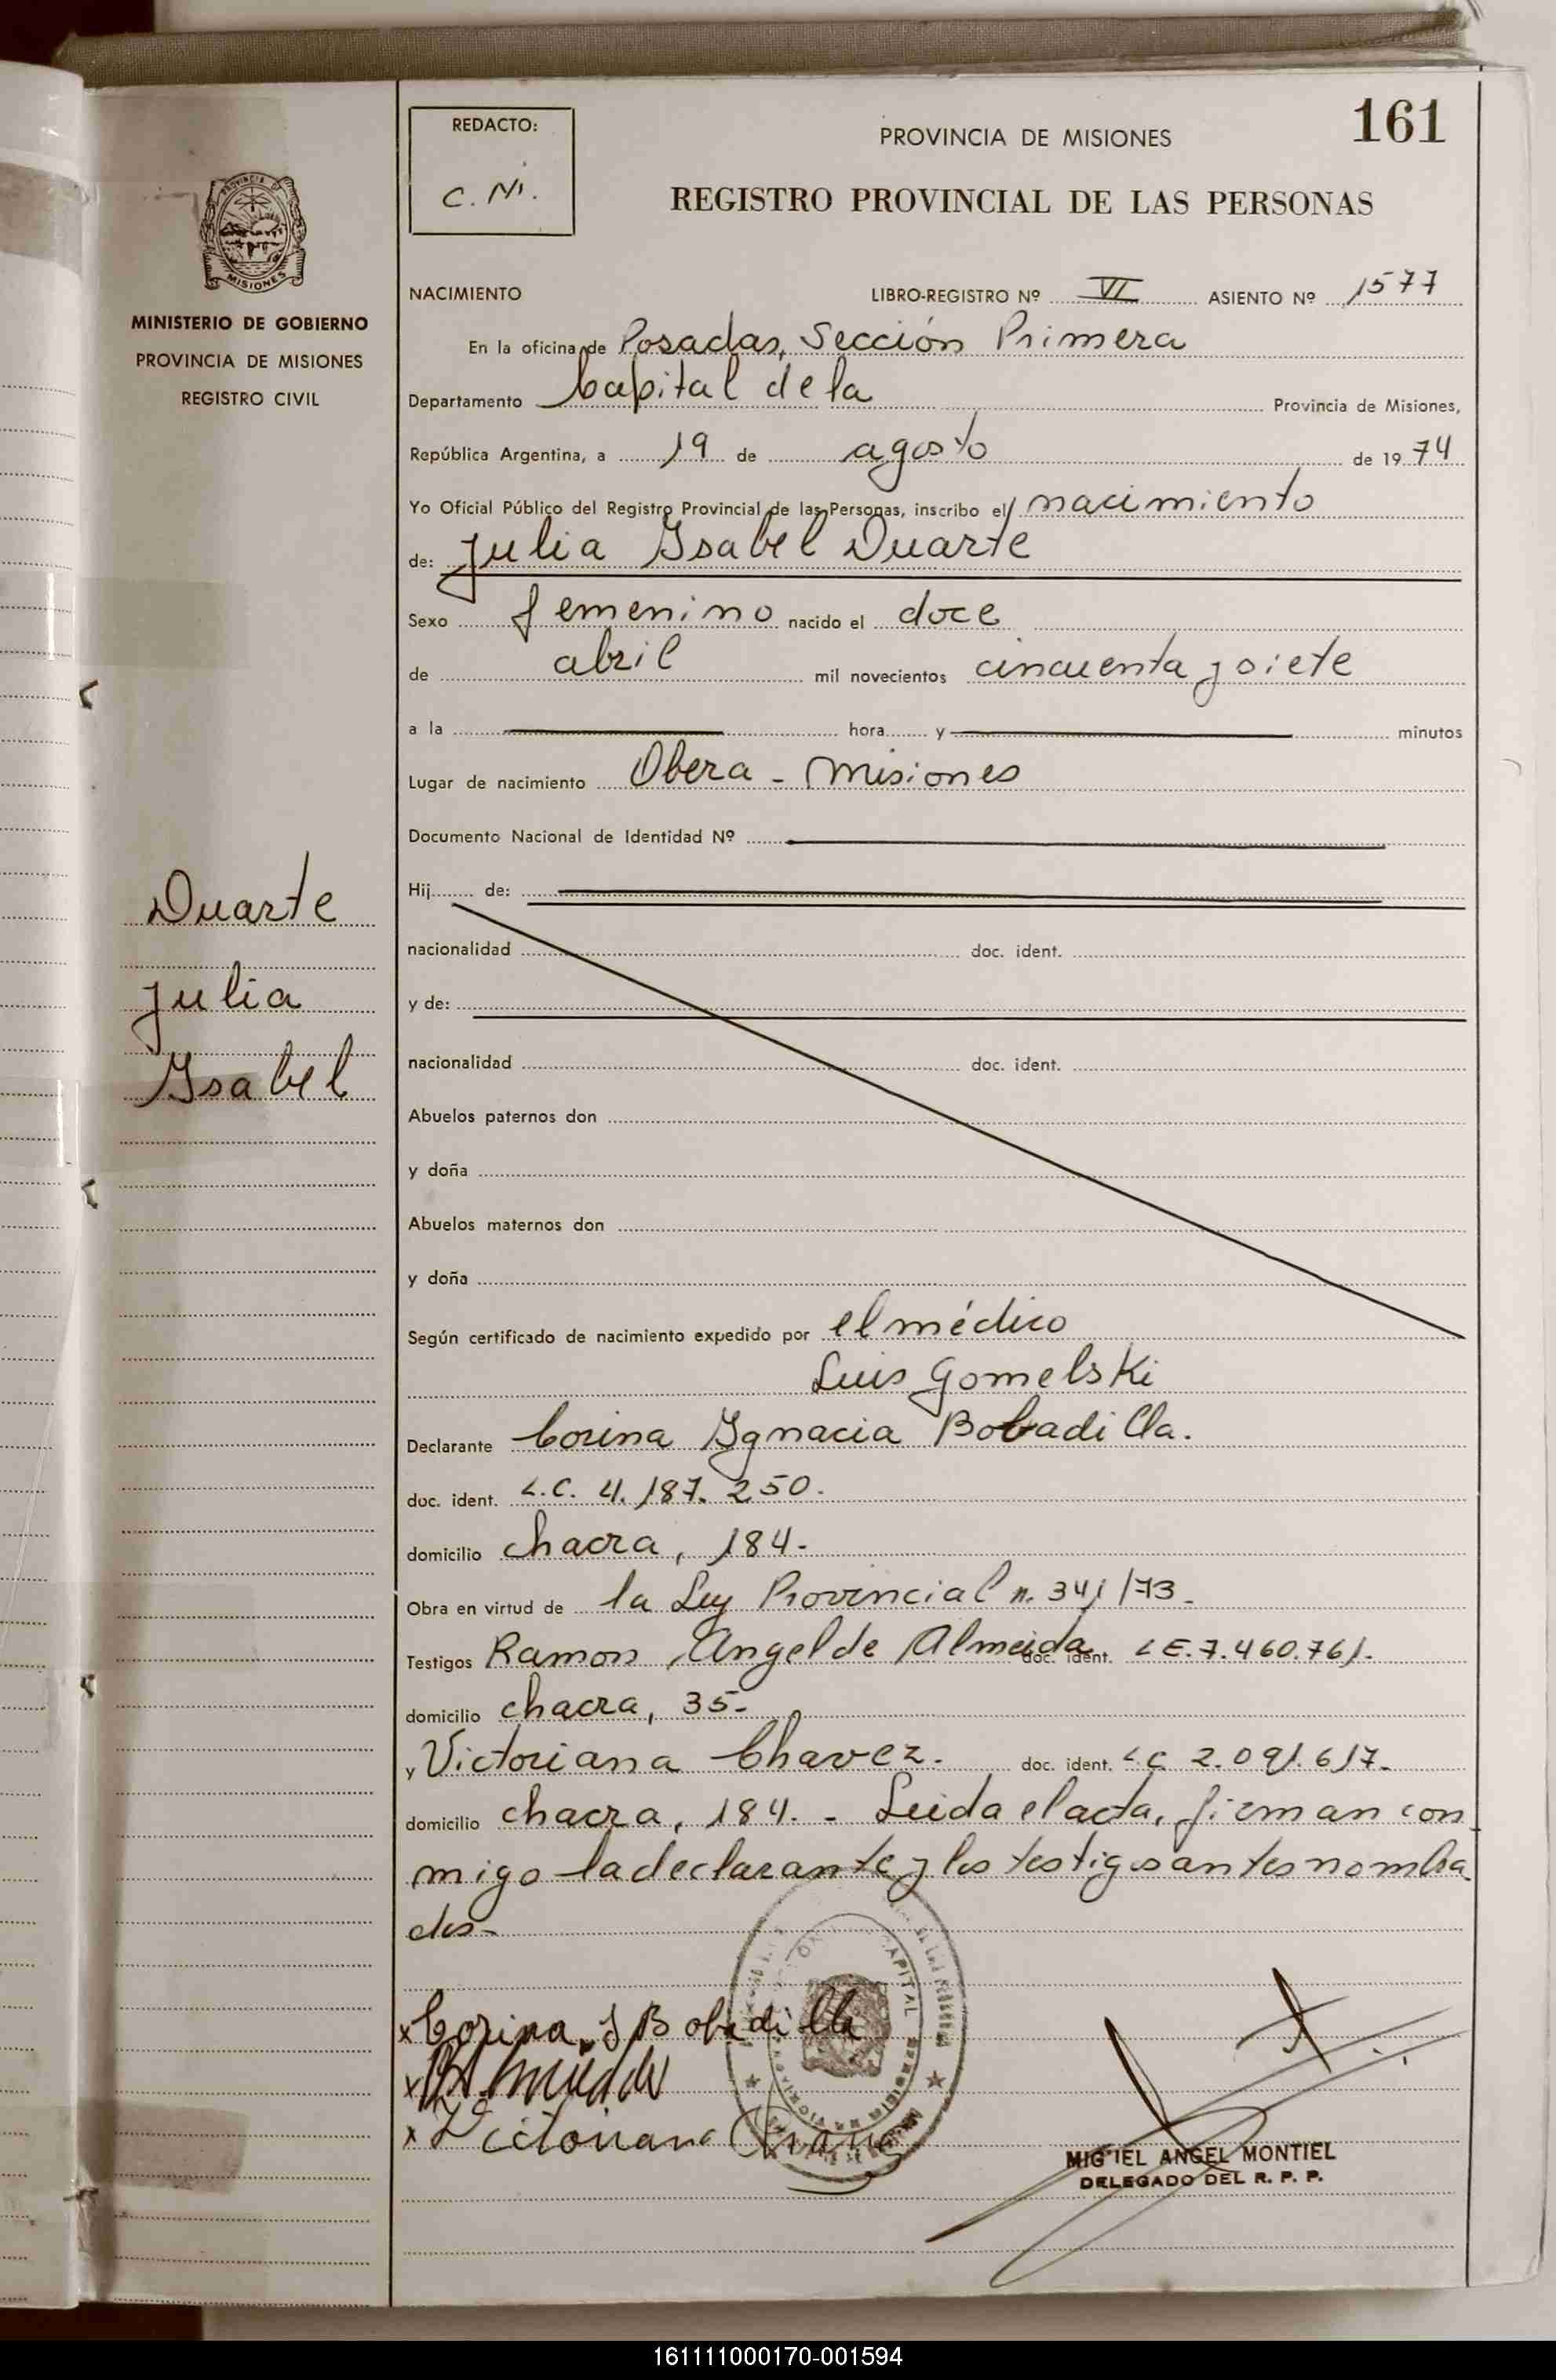 161
REDACTO:
C. Ni.
PROVINCIA DE MISIONES
REGISTRO PROVINCIAL DE LAS PERSONAS
PROVINCIA D
MISIONES
MINISTERIO DE GOBIERNO
PROVINCIA DE MISIONES
REGISTRO CIVIL
NACIMIENTO LIBRO-REGISTRO Nº VI ASIENTO Nº 1577
En la oficina de Posadas, Sección Primera
Departamento Capital de la Provincia de Misiones,
República Argentina, a 19 de agosto de 19 74
Yo Oficial Público del Registro Provincial de las Personas, inscribo el nacimiento
de: Julia Ysabel Duarte
Sexo femenino nacido el doce
de abril mil novecientos cincuenta y siete
a la hora y minutos
Lugar de nacimiento Obera - Misiones
Documento Nacional de Identidad Nº
Hij de:
Duarte
Julia
Ysabel
nacionalidad doc. ident.
y de:
nacionalidad doc. ident.
Abuelos paternos don
y doña
Abuelos maternos don
y doña
Según certificado de nacimiento expedido por el médico
Luis Gomelski
Declarante Corina Ygnacia Bobadilla.
doc. ident. L.C. 4.187.250.
domicilio chacra, 184-
Obra en virtud de la Ley Provincial n. 341/73-
Testigos Ramon Angel de Almeida doc. ident. L E. 7.460.761.
domicilio chacra, 35-
y Victoriana Chavez. doc. ident. L C 2.091.617-
domicilio chacra, 184. - Leida el acta, firman con
migo la declarante y los testigos antes nombra
dos-
x Corina Y Bobadilla
x
x Victoriana
CAPITAL
MIGUEL ANGEL MONTIEL
DELEGADO DEL R. P. P.
161111000170-001594